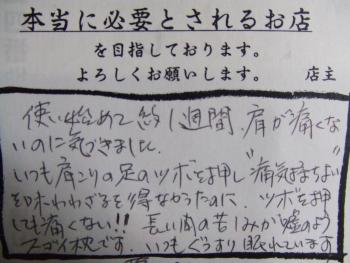 本当に必要とされるお店
を目指しております。
よろしくお願いします。 店主
使い始めて約1週間 肩が痛くな
いのに気づきました。
いつも肩こりの足のツボを押し"痛気持ちよい"
を味わわざるを得なかったのに、ツボを押
しても痛くない!! 長い間の苦しみが嘘のよう
スゴイ枕です。いつもぐっすり眠れています